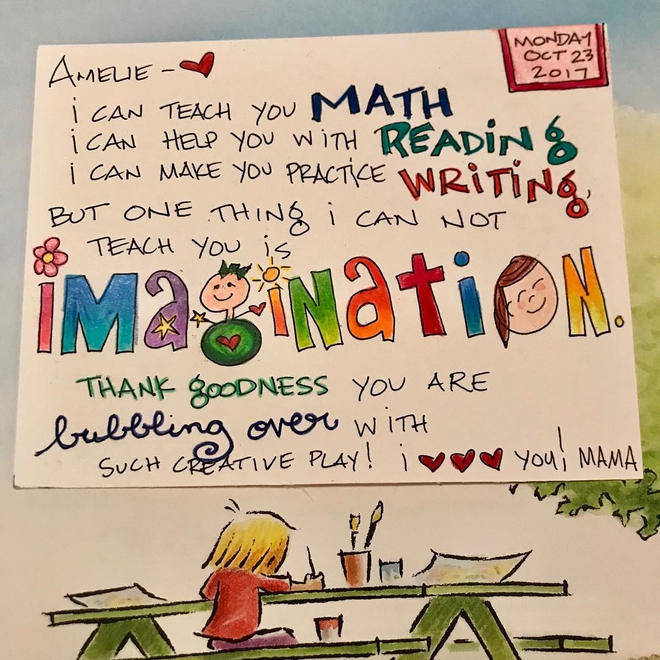 AMELIE -
MONDAY
OCT 23
2017
i CAN TEACH YOU MATH
i CAN HELP YOU WiTH READiNg
i CAN MAKE YOU PRACTiCE WRiTiNg,
BUT ONE THiNg i CAN NOT
TEACH YOU iS
iMAgiNATiON.
THANK gOODNESS YOU ARE
bubbling over WiTH
SUCH CREATIVE PLAY! i ♥♥♥ YOU! MAMA